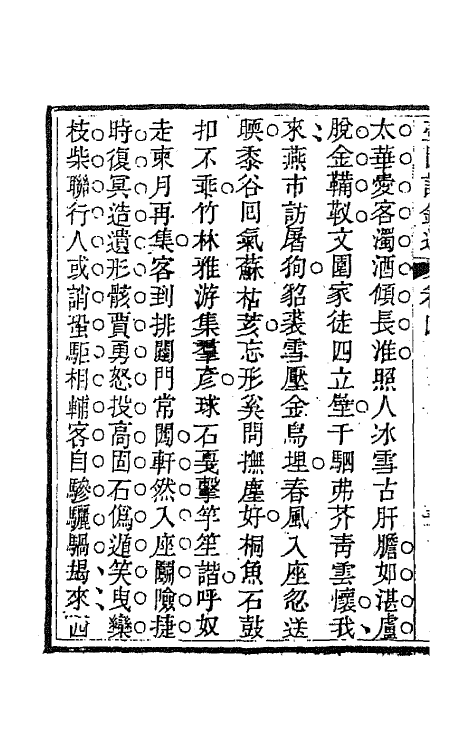 太華愛客濁酒傾長淮照人冰雪古肝膽如湛盧
脫金韉敧文園家徒四立壁千駟弗芥靑雲懷我
來燕市訪屠狗貂裘雪壓金烏埋春風入座忽送
腰黍谷回氣蘇枯荄忘形奚問撫塵好桐魚石鼓
扣不乖竹林雅游集羣彥球石戛擊竽笙諧呼奴
走柬月再集客到排闥門常闓軒然入座鬭險捷
時復冥造遺形骸賈勇怒投高固石僞遁笑曳欒
枝柴聯行人或誚蛩駏相輔客自驂驪騧朅來西